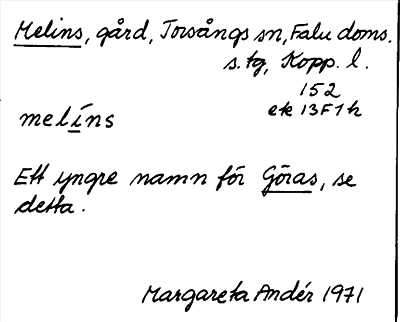 Melins, gård, Torsångs sn, Falu doms.
s. tg, Kopp. l.
152
ek 13F1h
melíns
Ett yngre namn för Göras, se
detta.
Margareta Andér 1971